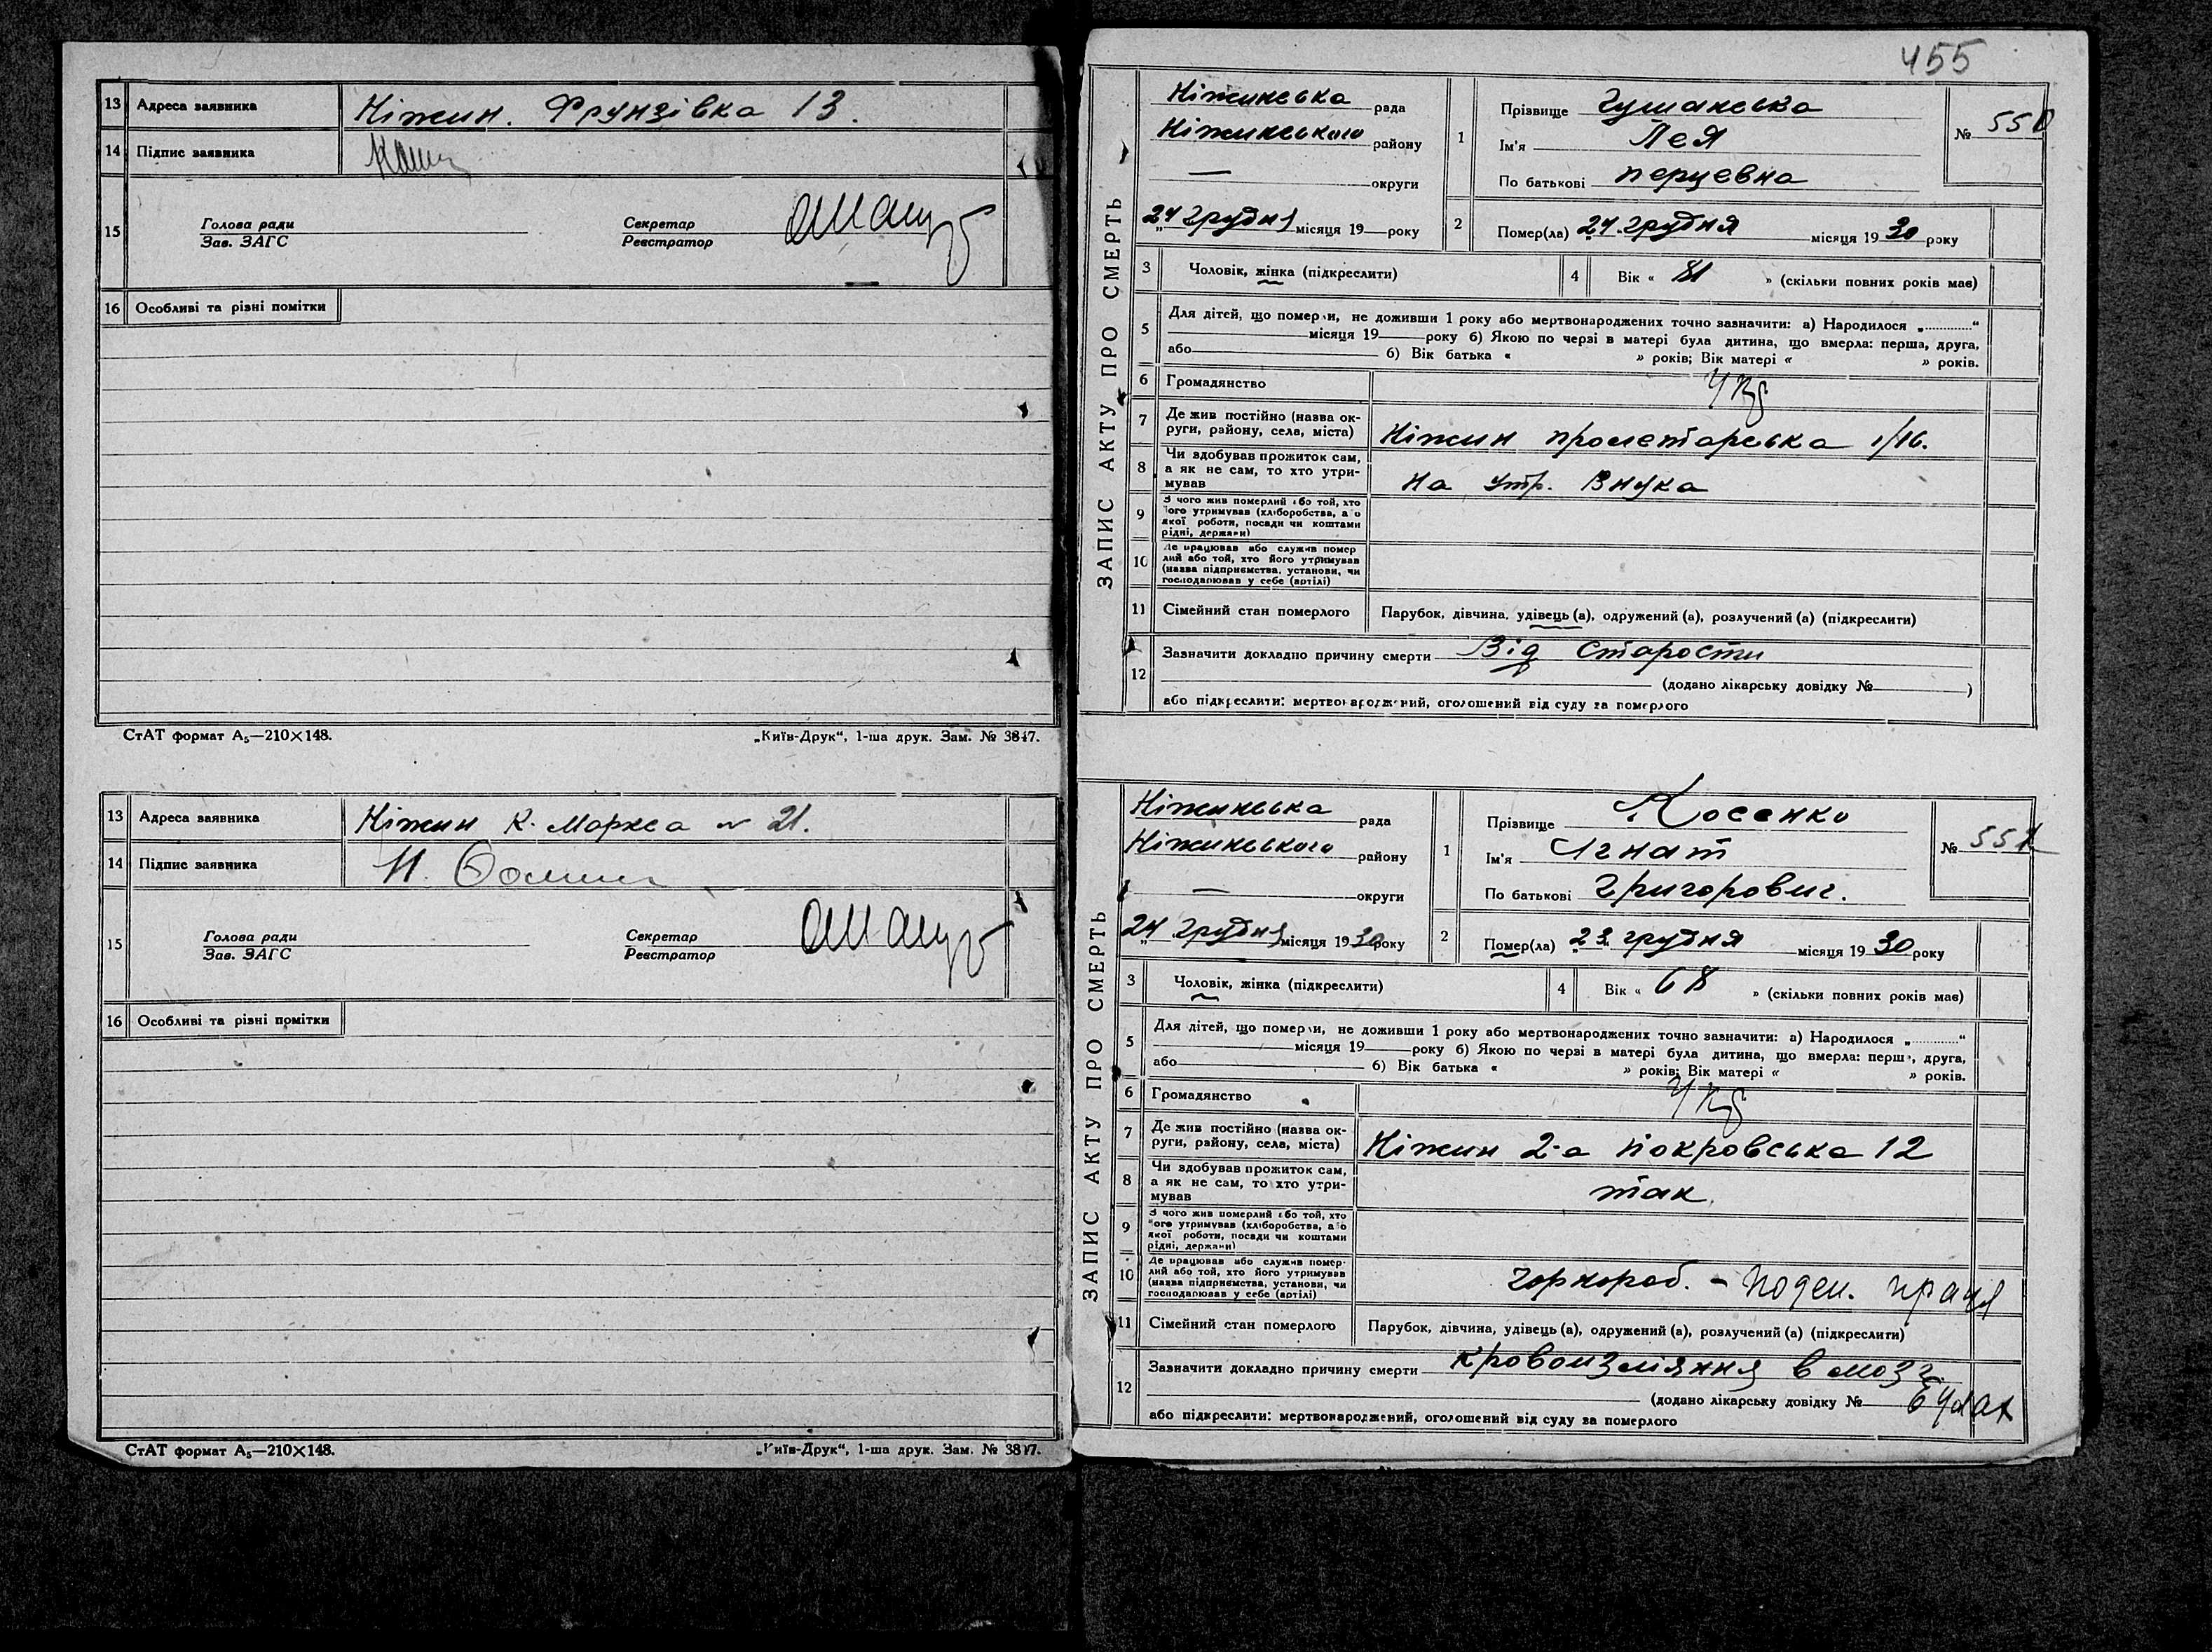 13 Адреса заявника Ніжин. Фрунзівка 13.
14 Підпис заявника
15 Голова ради
Зав. ЗАГС
Секретар
Реєстратор
16 Особливі та різні помітки
СтАТ формат А₅—210×148. „Київ-Друк“, 1-ша друк. Зам. № 3847.
13 Адреса заявника Ніжин К. Маркса № 21.
14 Підпис заявника
15 Голова ради
Зав. ЗАГС
Секретар
Реєстратор
16 Особливі та різні помітки
СтАТ формат А₅—210×148. „Київ-Друк“, 1-ша друк. Зам. № 3847.
455
ЗАПИС АКТУ ПРО СМЕРТЬ
Ніжинська рада
Ніжинського району
— округи
„24 грудня місяця 19— року
1 Прізвище Гушанська
Ім'я Лея
По батькові перцевна
№ 550
2 Помер(ла) 24 грудня місяця 1930 року
3 Чоловік, жінка (підкреслити)
4 Вік « 81 » (скільки повних років має)
5 Для дітей, що померли, не доживши 1 року або мертвонароджених точно зазначити: а) Народилося „............“
місяця 19 року б) Якою по черзі в матері була дитина, що вмерла: перша, друга,
або б) Вік батька « » років; Вік матері « » років.
6 Громадянство Укр
7 Де жив постійно (назва округи, району, села, міста) Ніжин пролетарська 1/16.
8 Чи здобував прожиток сам, а як не сам, то хто утримував на утр. Внука
9 З чого жив померлий або той, хто його утримував (хліборобства, або якої роботи, посади чи коштами рідні, держави)
10 Де працював або служив померлий або той, хто його утримував (назва підприємства, установи, чи господарював у себе (артілі)
11 Сімейний стан померлого Парубок, дівчина, удівець (а), одружений (а), розлучений (а) (підкреслити)
12 Зазначити докладно причину смерти Від Старости
(додано лікарську довідку № )
або підкреслити: мертвонароджений, оголошений від суду за померлого
ЗАПИС АКТУ ПРО СМЕРТЬ
Ніжинська рада
Ніжинського району
— округи
„24 грудня місяця 1930 року
1 Прізвище Косенко
Ім'я Ігнат
По батькові Григорович.
№ 551
2 Помер(ла) 23 грудня місяця 1930 року
3 Чоловік, жінка (підкреслити)
4 Вік « 68 » (скільки повних років має)
5 Для дітей, що померли, не доживши 1 року або мертвонароджених точно зазначити: а) Народилося „............“
місяця 19 року б) Якою по черзі в матері була дитина, що вмерла: перша, друга,
або б) Вік батька « » років; Вік матері « » років.
6 Громадянство Укр
7 Де жив постійно (назва округи, району, села, міста) Ніжин 2-а Покровська 12
8 Чи здобував прожиток сам, а як не сам, то хто утримував так
9 З чого жив померлий або той, хто його утримував (хліборобства, або якої роботи, посади чи коштами рідні, держави)
10 Де працював або служив померлий або той, хто його утримував (назва підприємства, установи, чи господарював у себе (артілі) чорнороб. - поден. праця
11 Сімейний стан померлого Парубок, дівчина, удівець (а), одружений (а), розлучений (а) (підкреслити)
12 Зазначити докладно причину смерти кровоизліяння в мозг
(додано лікарську довідку №
або підкреслити: мертвонароджений, оголошений від суду за померлого